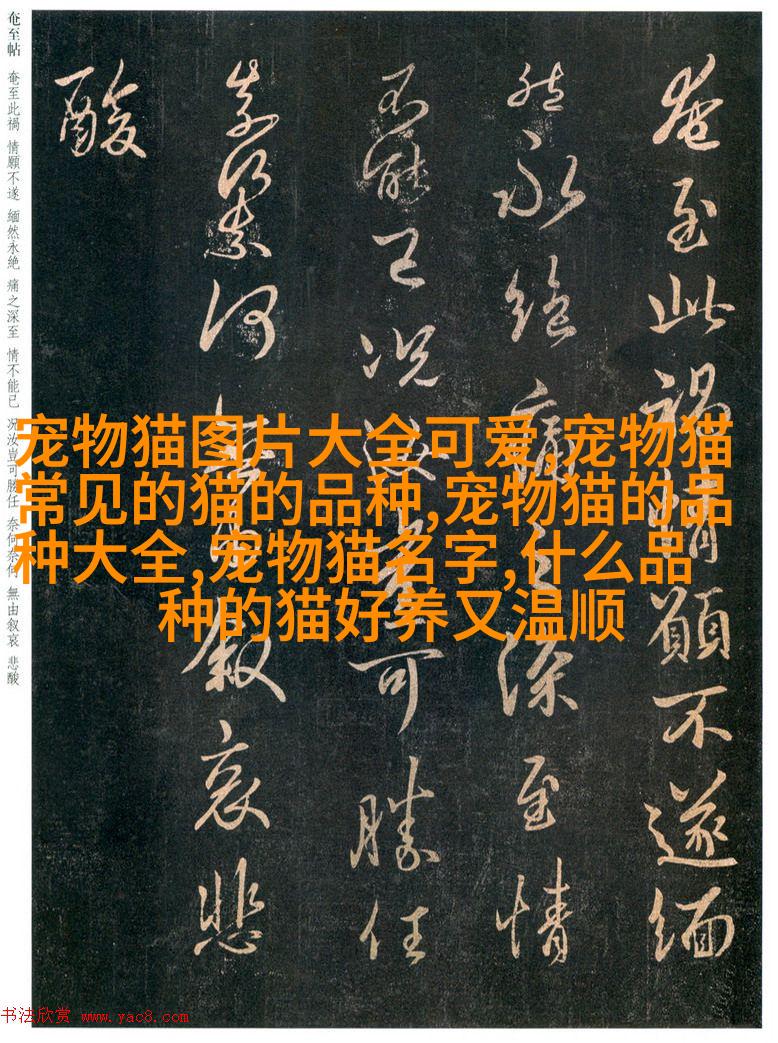 奄至此禍情願不遂緬
然永絶痛之深至情
不能已况汝豈可勝任
奈何奈何無由叙哀悲
酸
奄至帖 奄至此禍 情願不遂 緬然永絶 痛之深至 情不能已 况汝豈可勝任 奈何奈何 無由叙哀 悲酸
宠物猫图片大全可爱,宠物猫
常见的猫的品种,宠物猫的品
种大全,宠物猫名字,什么品
种的猫好养又温顺
书法欣赏 www.yac8.com